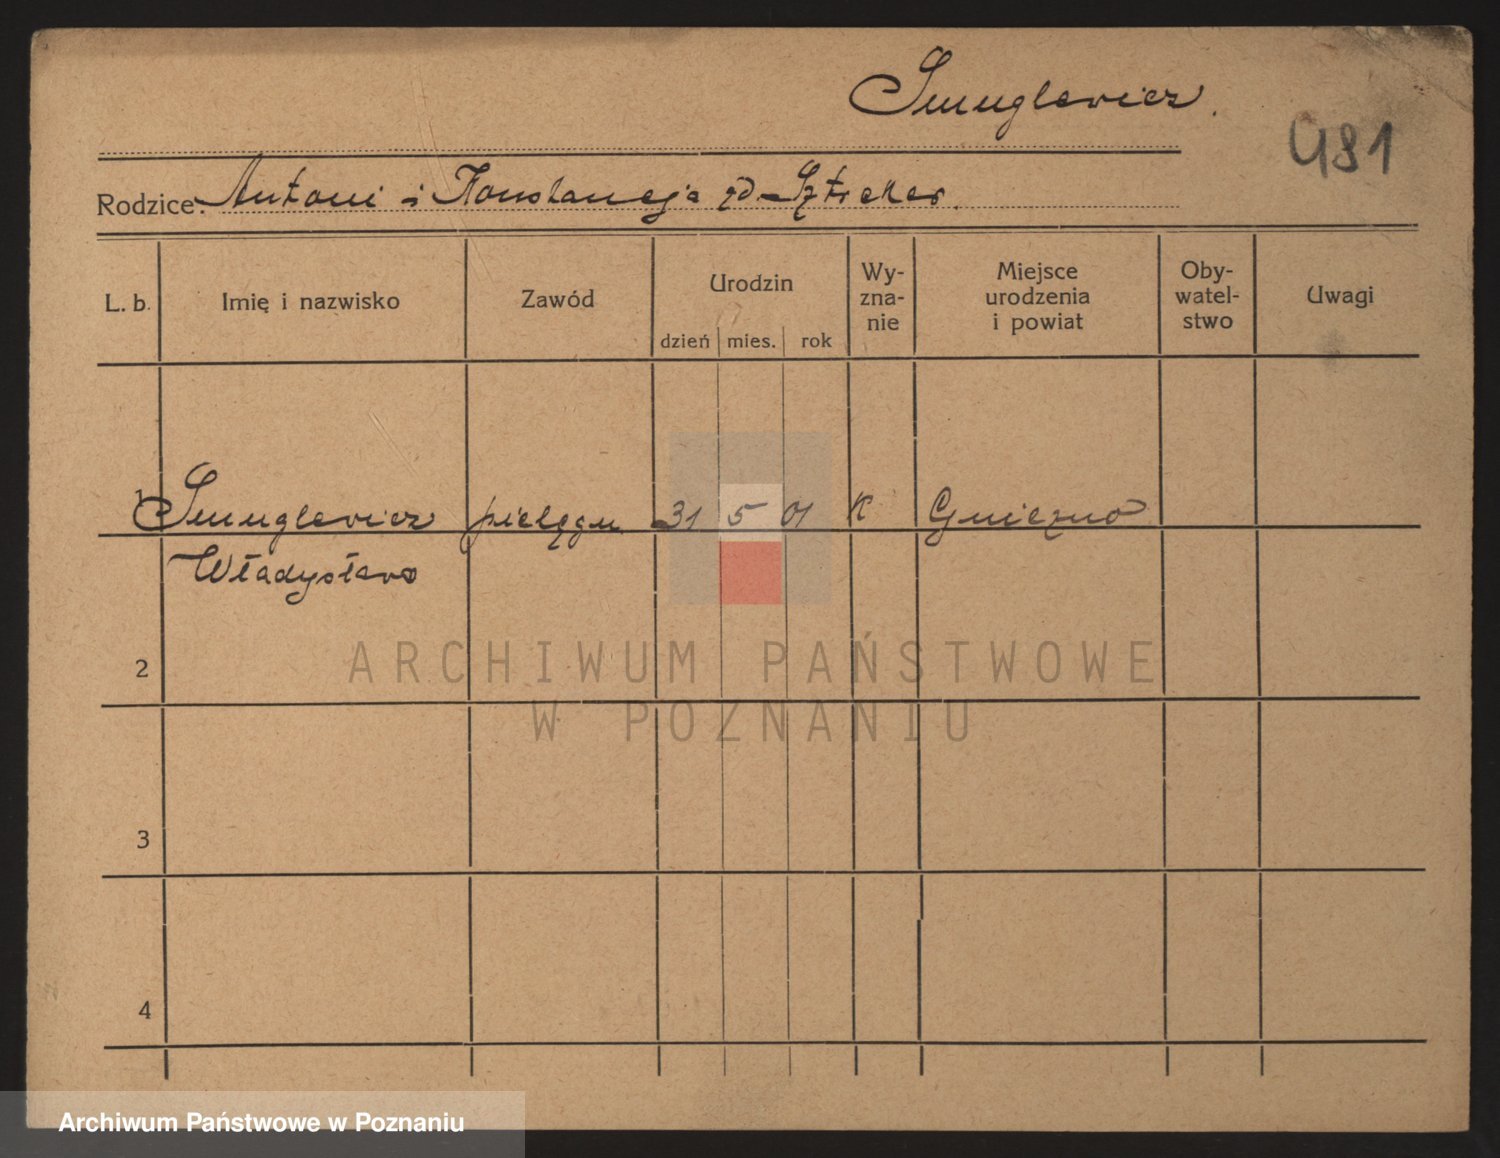 Smuglewicz.
981
Rodzice: Antoni i Konstancja zd. Sztreker.
L. b. Imię i nazwisko Zawód Urodzin dzień mies. rok Wy-zna-nie Miejsce urodzenia i powiat Oby-watel-stwo Uwagi
1 Smuglewicz pielęgn. 31 5 01 K Gniezno
Władysława
2
ARCHIWUM PAŃSTWOWE
W POZNANIU
3
4
Archiwum Państwowe w Poznaniu